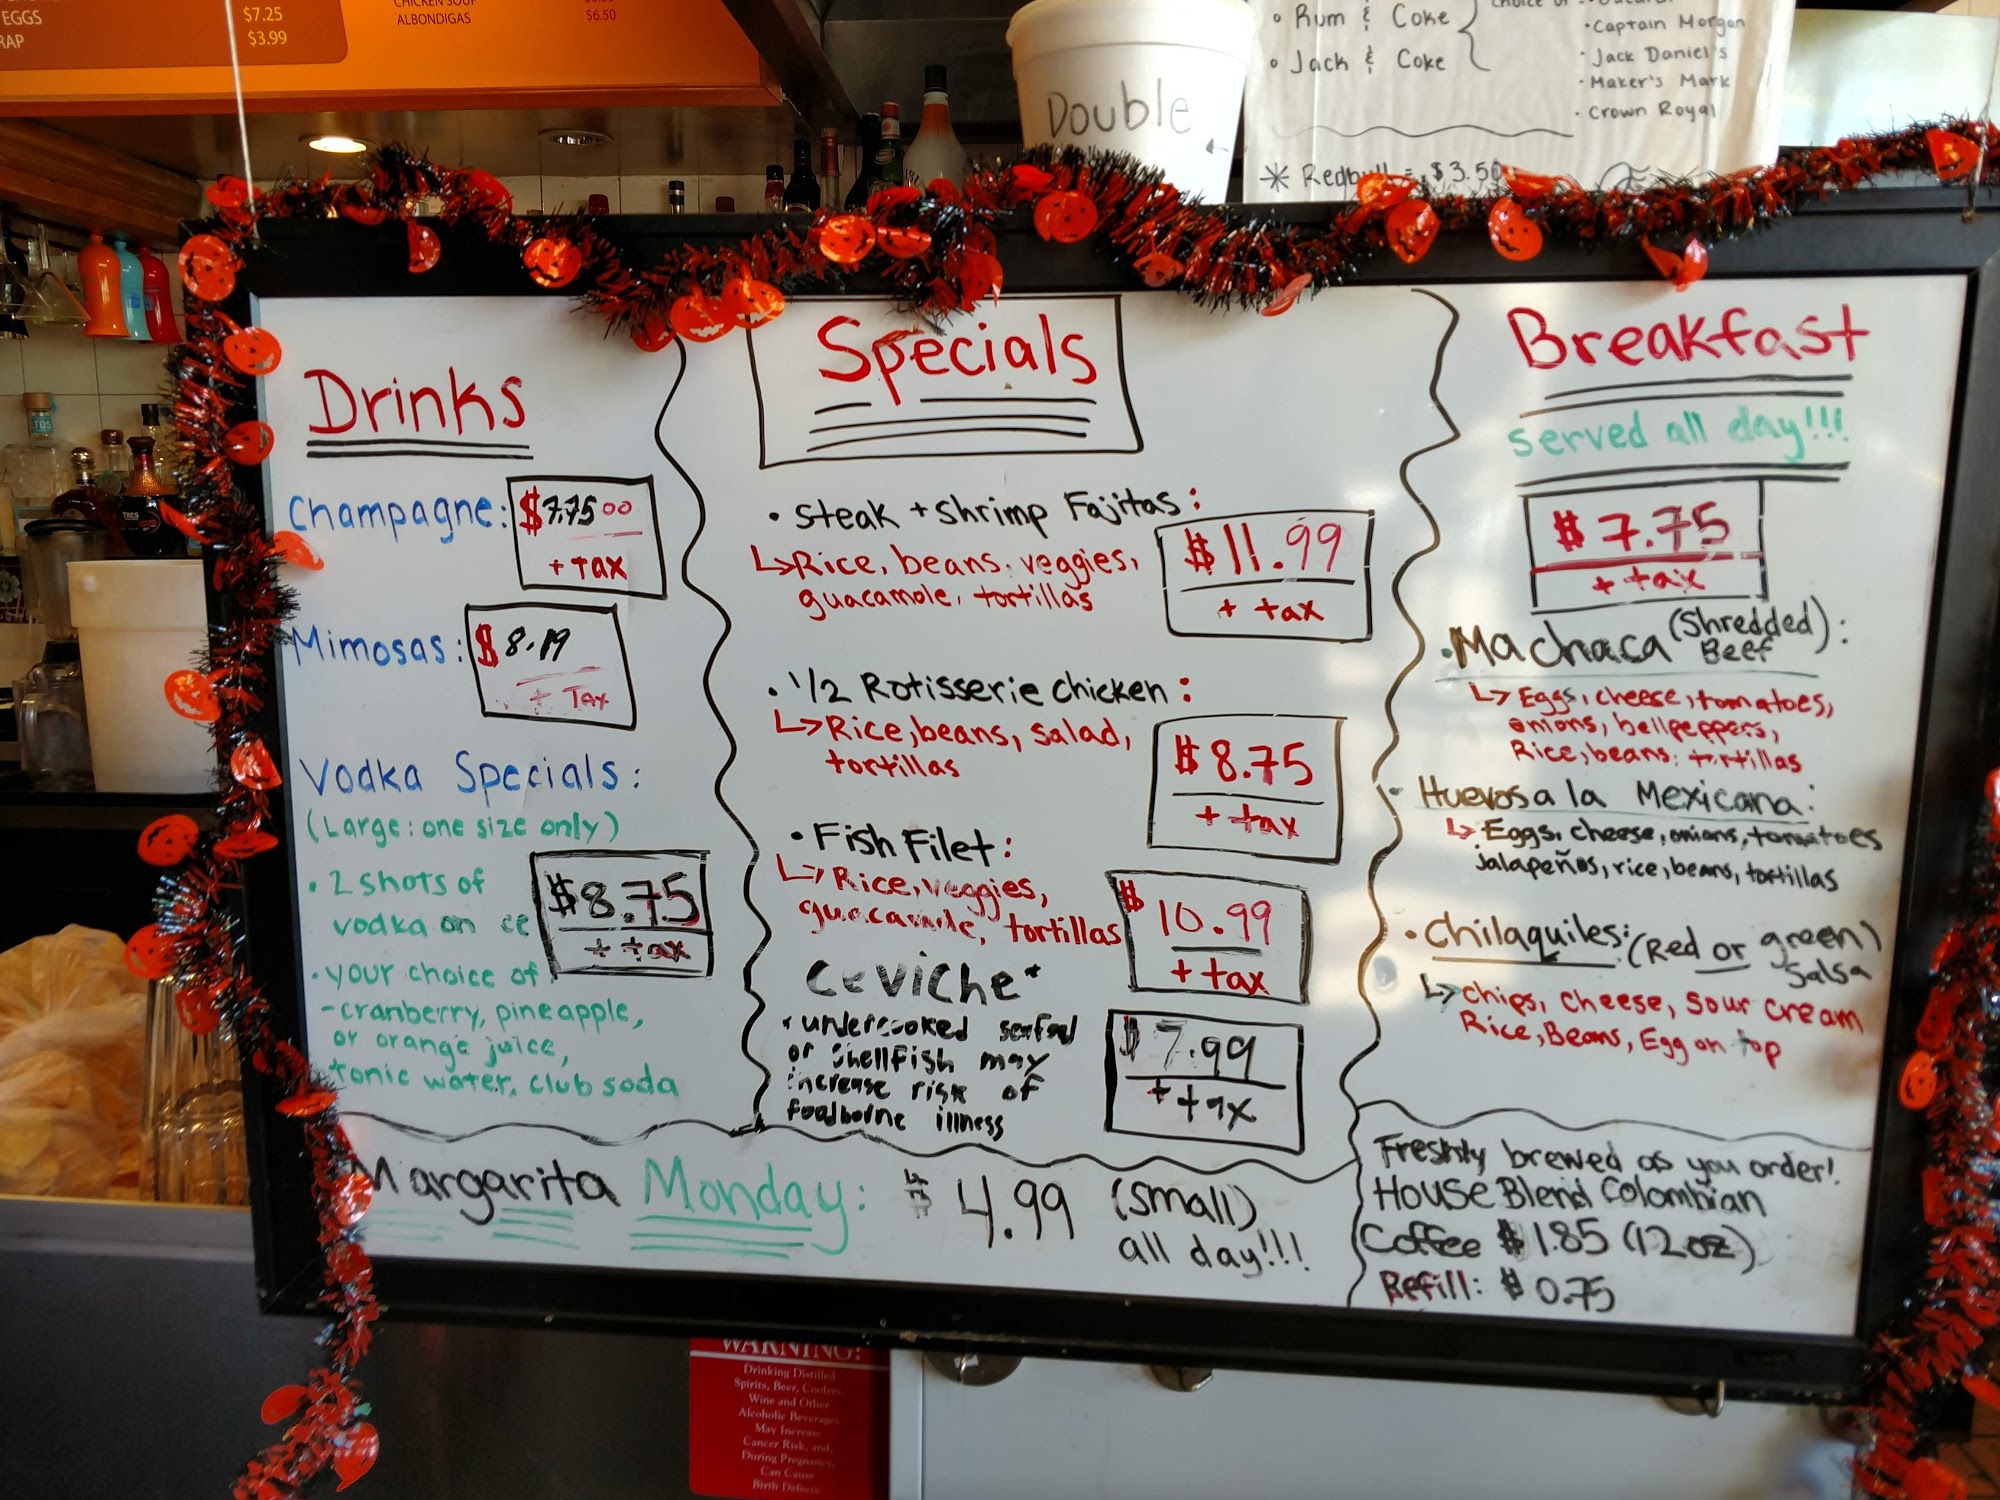 EGGS
RAP
$7.25
$3.99
CHICKEN SOUP
ALBONDIGAS
$6.50
Double
• Rum & Coke
• Jack & Coke
choice of
• Captain Morgan
• Jack Daniel's
• Maker's Mark
• Crown Royal
* Redbull = $3.50
Drinks
Champagne: $7.75 00
+ tax
Mimosas: $8.19
+ Tax
Vodka Specials:
(Large: one size only)
• 2 shots of
vodka on ce
$8.75
+ tax
• your choice of
- cranberry, pineapple,
or orange juice,
tonic water, club soda
Specials
• Steak + Shrimp Fajitas:
↳Rice, beans, veggies,
guacamole, tortillas
$11.99
+ tax
• 1/2 Rotisserie Chicken:
↳Rice, beans, salad,
tortillas
$8.75
+ tax
• Fish Filet:
↳Rice, veggies,
guacamole, tortillas
$10.99
+ tax
Ceviche*
* undercooked seafood
or shellfish may
increase risk of
foodborne illness
$7.99
+ tax
Breakfast
served all day!!!
$7.75
+ tax
• Machaca (Shredded Beef):
↳Eggs, cheese, tomatoes,
onions, bellpeppers,
Rice, beans, tortillas
• Huevos a la Mexicana:
↳Eggs, cheese, onions, tomatoes
jalapeños, rice, beans, tortillas
• Chilaquiles: (Red or green)
Salsa
↳Chips, Cheese, Sour cream
Rice, Beans, Egg on top
Margarita Monday: $4.99 (small)
all day!!!
Freshly brewed as you order!
House Blend Colombian
Coffee $1.85 (12oz)
Refill: $0.75
WARNING:
Drinking Distilled
Spirits, Beer, Coolers,
Wine and Other
Alcoholic Beverages
May Increase
Cancer Risk, and,
During Pregnancy,
Can Cause
Birth Defects.